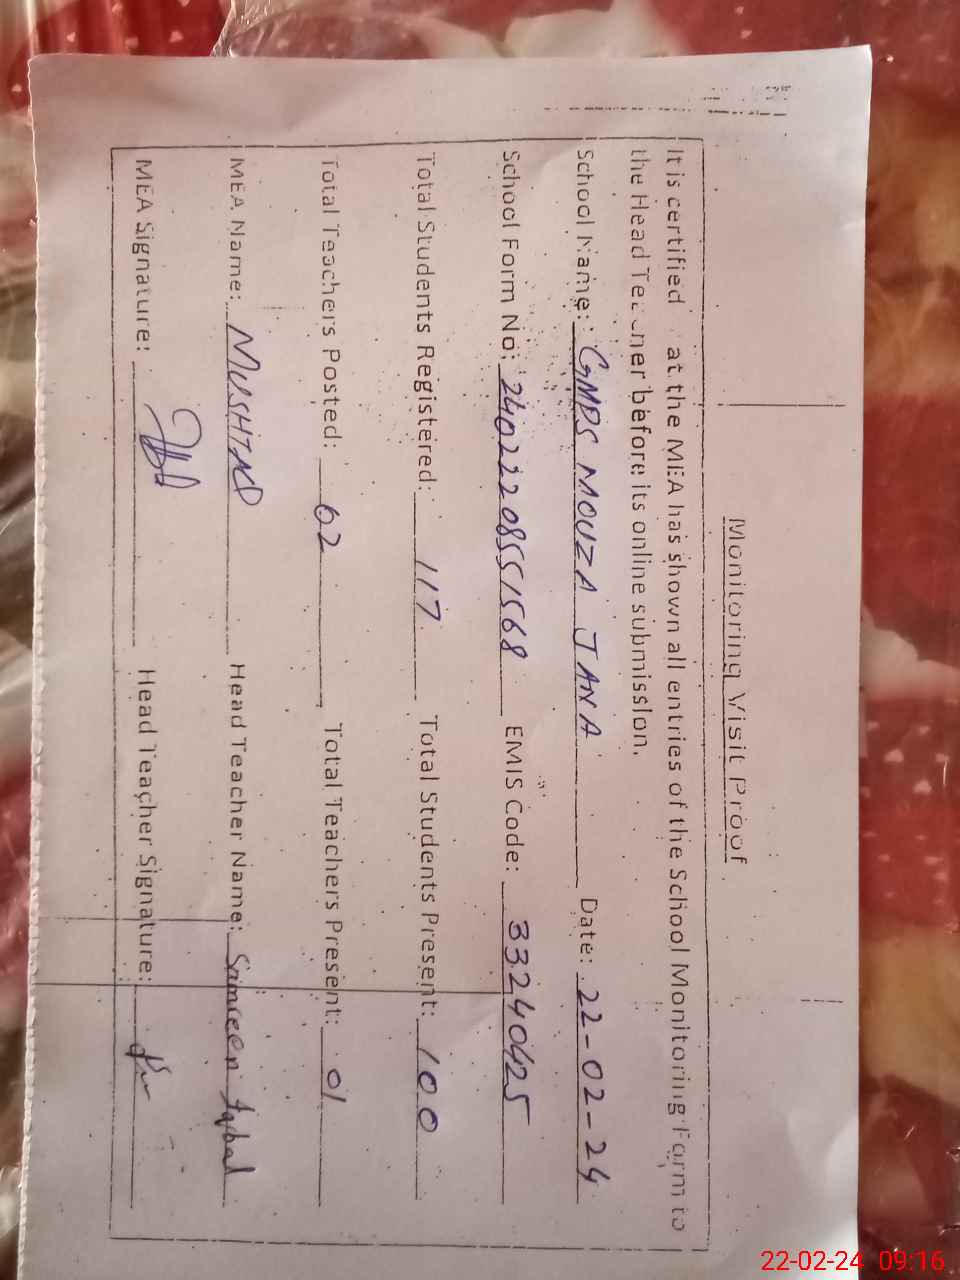 Monitoring Visit Proof
It is certified at the MEA has shown all entries of the School Monitoring Form to
the Head Teacher before its online submission.
School Name: GMPS MOUZA JANA Date: 22-02-24
School Form No: 24022208551568 EMIS Code: 33240425
Total Students Registered: 117 Total Students Present: 100
Total Teachers Posted: 02 Total Teachers Present: 01
MEA Name: MUSHTAQ Head Teacher Name: Samreen Iqbal
MEA Signature: Head Teacher Signature:
22-02-24 09:16